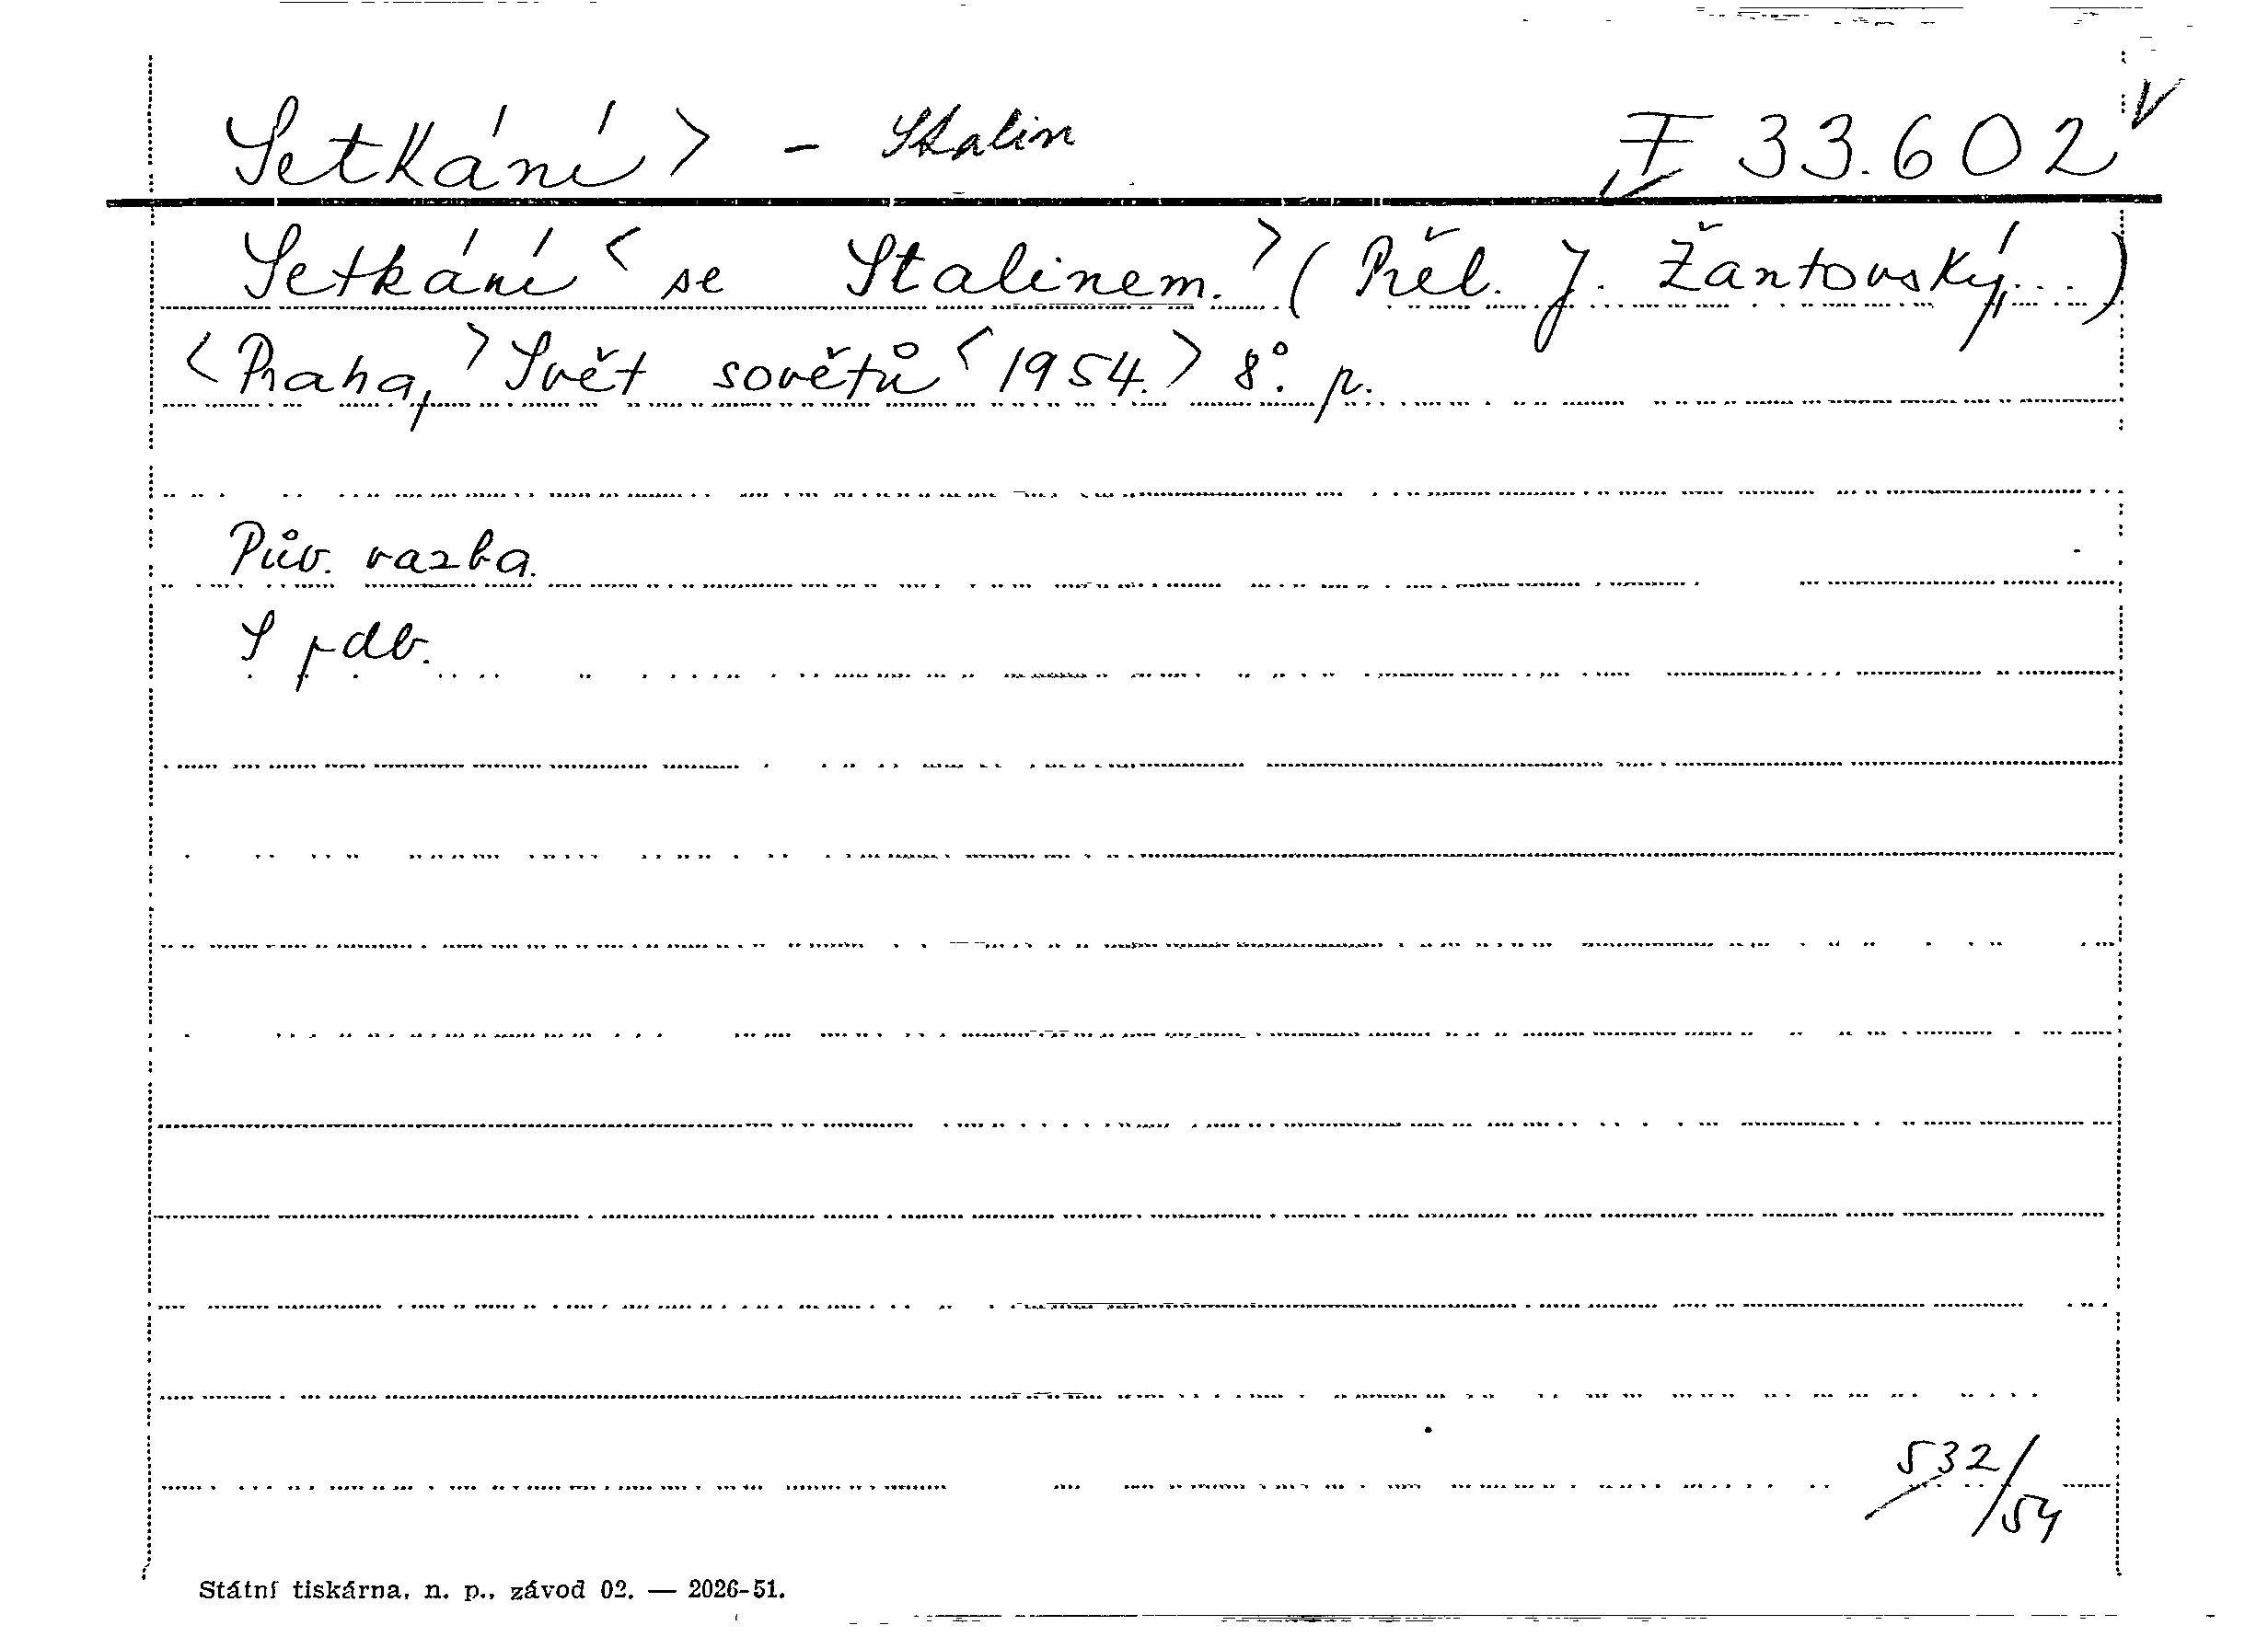 Setkání> - Stalin F 33.602
Setkání < se Stalinem. > (Přel. J. Žantovský,...)
<Praha,> Svět sovětů <1954.> 8°. p.
Pův. vazba.
S pdb.
532/54
Státní tiskárna, n. p., závod 02. — 2026-51.